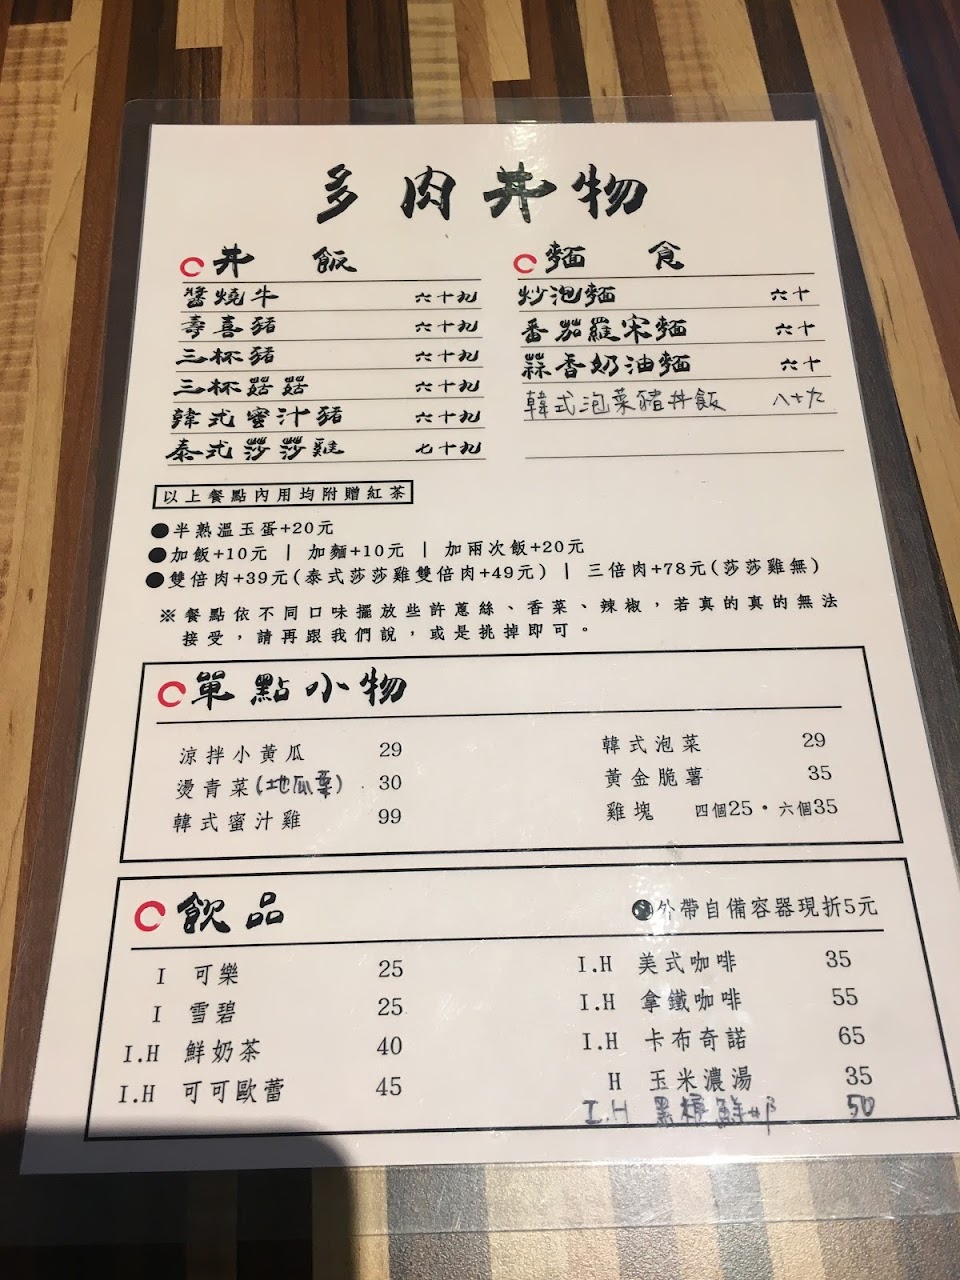 多肉丼物
丼飯
醬燒牛 六十九
壽喜豬 六十九
三杯豬 六十九
三杯菇菇 六十九
韓式蜜汁豬 六十九
泰式莎莎雞 七十九
麵食
炒泡麵 六十
番茄羅宋麵 六十
蒜香奶油麵 六十
韓式泡菜豬丼飯 八十九
以上餐點內用均附贈紅茶
●半熟溫玉蛋+20元
●加飯+10元 | 加麵+10元 | 加兩次飯+20元
●雙倍肉+39元(泰式莎莎雞雙倍肉+49元) | 三倍肉+78元(莎莎雞無)
※餐點依不同口味擺放些許蔥絲、香菜、辣椒，若真的真的無法
接受，請再跟我們說，或是挑掉即可。
單點小物
涼拌小黃瓜 29
燙青菜(地瓜葉) 30
韓式蜜汁雞 99
韓式泡菜 29
黃金脆薯 35
雞塊 四個25・六個35
飲品
外帶自備容器現折5元
I 可樂 25
I 雪碧 25
I.H 鮮奶茶 40
I.H 可可歐蕾 45
I.H 美式咖啡 35
I.H 拿鐵咖啡 55
I.H 卡布奇諾 65
H 玉米濃湯 35
I.H 黑糖鮮奶 50